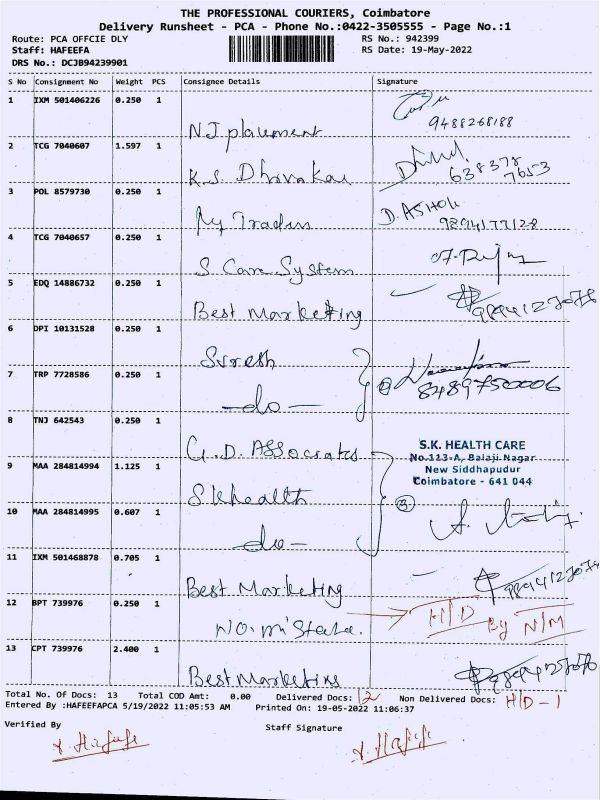 THE PROFESSIONAL COURIERS, Coimbatore
Delivery Runsheet - PCA - Phone No.:0422-3505555 - Page No.:1
Route: PCA OFFCIE DLY RS No.: 942399
Staff: HAFEEFA RS Date: 19-May-2022
DRS No.: DCJB94239901
S No Consignment No Weight PCS Consignee Details Signature
1 IXM 501406226 0.250 1
NJ placement 9488268188
2 TCG 7040607 1.597 1
K.S. Dhivakar 638378
7653
3 POL 8579730 0.250 1
D. ASHOK
9894177128
4 TCG 7040657 0.250 1
S Care System
5 EDQ 14886732 0.250 1
Best Marketing
6 DPI 10131528 0.250 1
Suresh
7 TRP 7728586 0.250 1
-do- 8489750006
8 TNJ 642543 0.250 1
G.D. Associates S.K. HEALTH CARE
No.113-A, Balaji Nagar
9 MAA 284814994 1.125 1 New Siddhapudur
Skhealth Coimbatore - 641 044
10 MAA 284814995 0.607 1 3
-do-
11 IXM 501468878 0.705 1
Best Marketing
12 BPT 739976 0.250 1 H/D By N/M
13 CPT 739976 2.400 1
Best Marketing
Total No. Of Docs: 13 Total COD Amt: 0.00 Delivered Docs: 12 Non Delivered Docs: H/D-1
Entered By :HAFEEFAPCA 5/19/2022 11:05:53 AM Printed On: 19-05-2022 11:06:37
Verified By Staff Signature